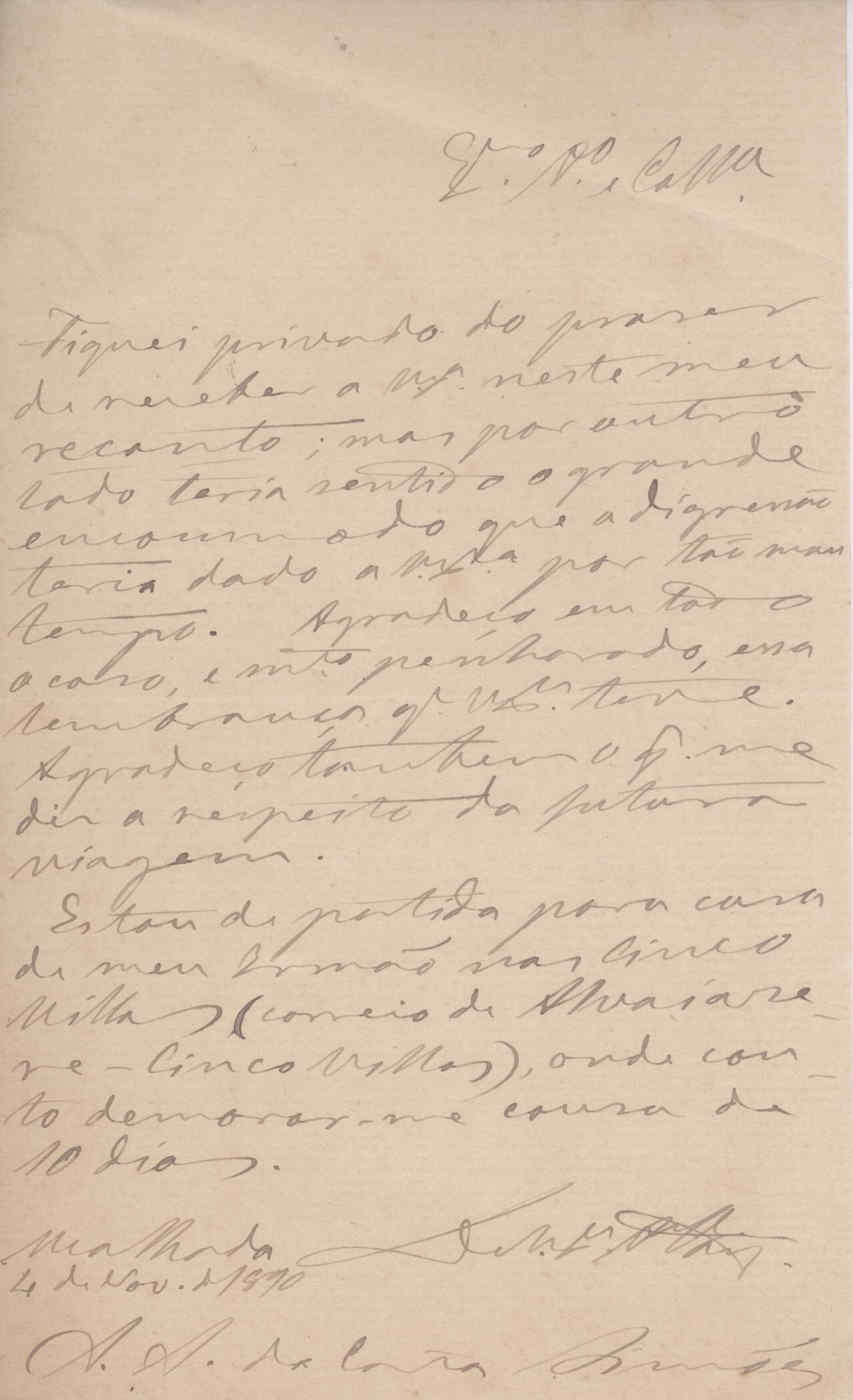 Ex.mo A.o e Coll.a
Fiquei privado do praser
de receber a V.Ex.a neste meu
recanto; mas por outro
lado teria sentido o grande
encommodo que a digressão
teria dado a V.Ex.a por tão mau
tempo. Agradeço em todo o
o caso, e mto penhorado, essa
lembrança q. V.Ex.a teve.
Agradeço tambem o q. me
diz a respeito da futura
viagem.
Estou de partida para casa
de meu Irmão nas Cinco
Villas (correio de Alvaiaze-
re - Cinco Villas), onde con-
to demorar-me cousa de
10 dias.
Mealhada De V. Ex.a
4 de Nov. de 1890
A. A. da Costa Simões